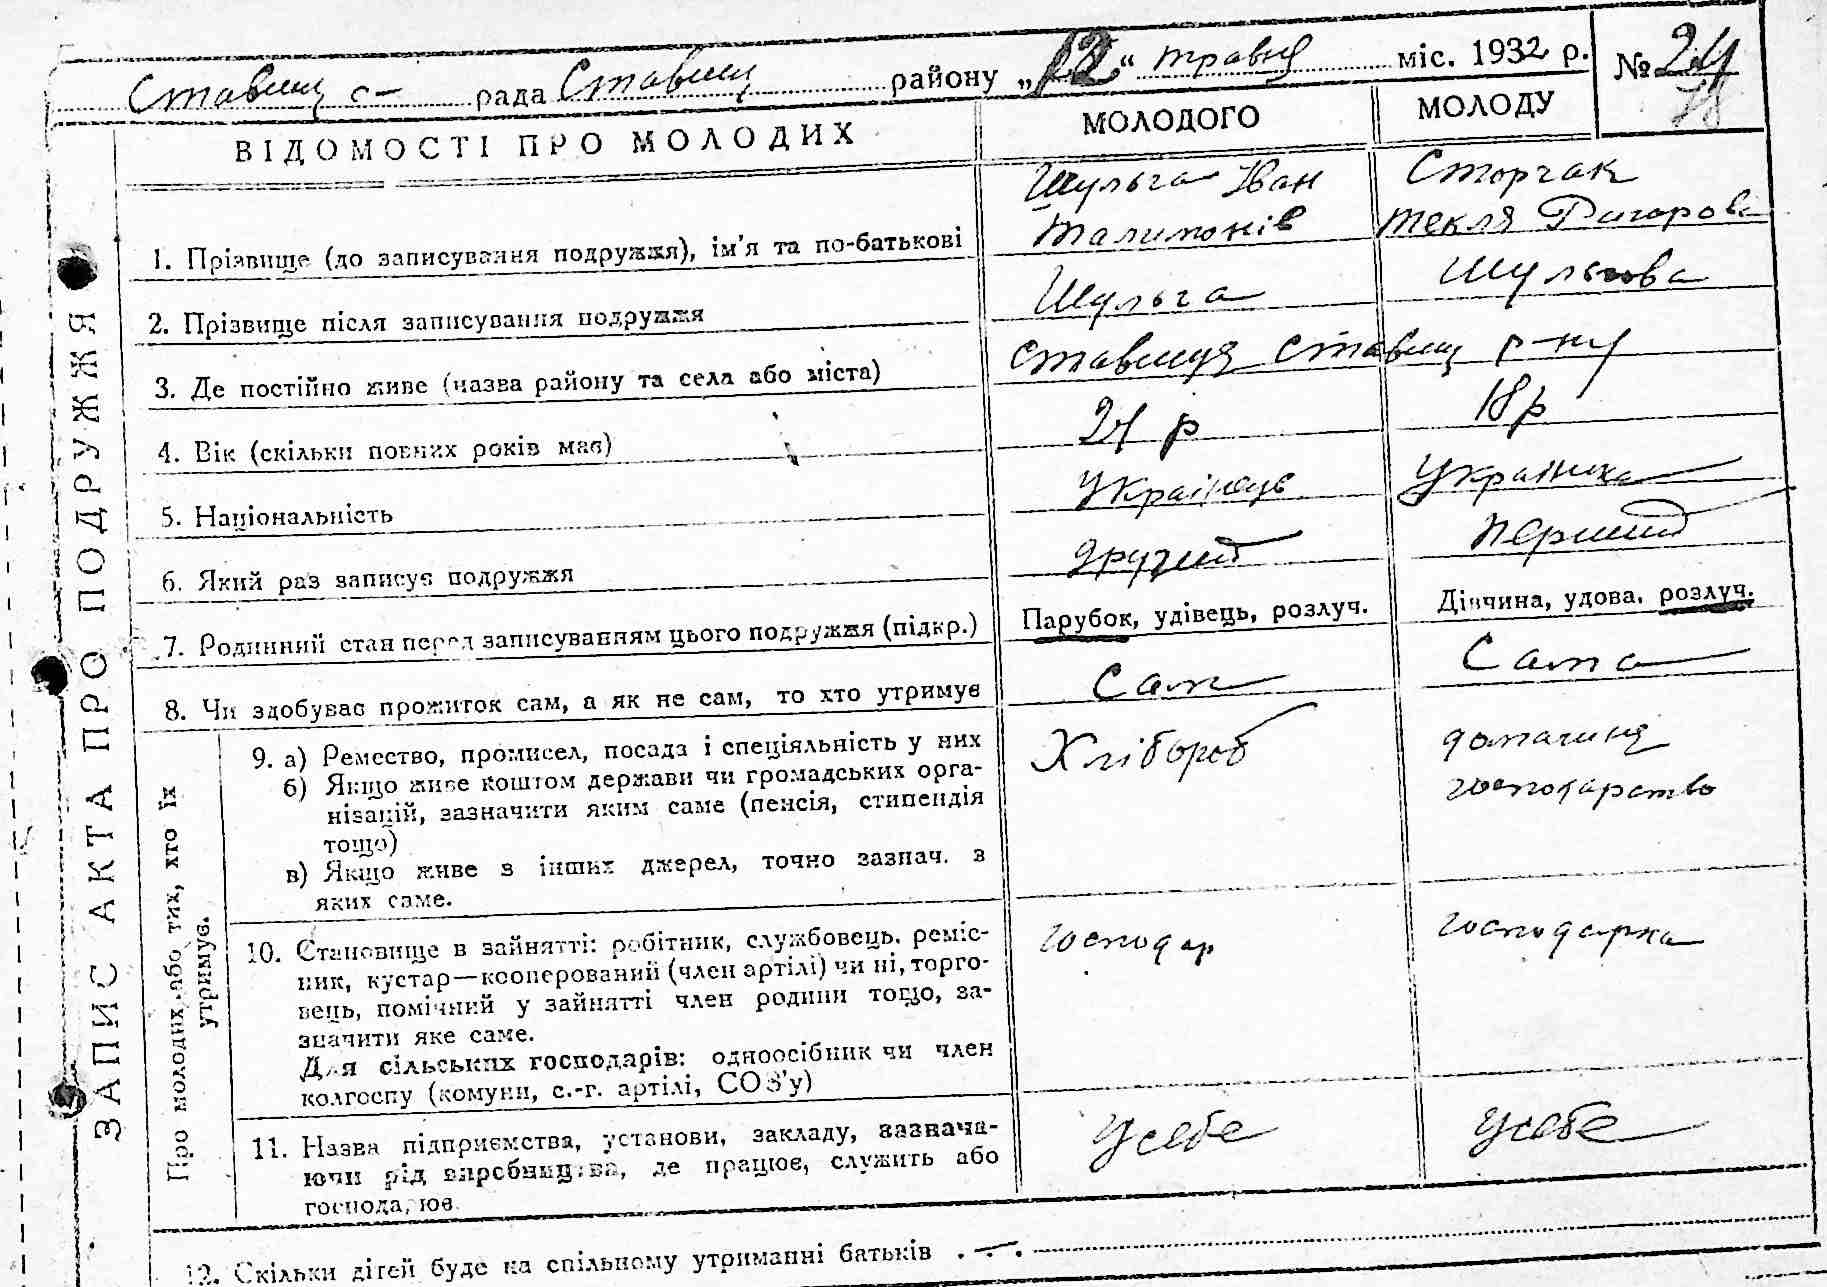 Ставищ с- рада Ставищ району „12" травня міс. 1932 р. № 24
ВІДОМОСТІ ПРО МОЛОДИХ МОЛОДОГО МОЛОДУ
ЗАПИС АКТА ПРО ПОДРУЖЖЯ
1. Прізвище (до записування подружжя), ім'я та по-батькові Шульга Іван Филимонів Сторчак Текля Григорова
2. Прізвище після записування подружжя Шульга Шульгова
3. Де постійно живе (назва району та села або міста) Ставище Ставищ р-ну
4. Вік (скільки повних років має) 21 р 18 р
5. Національність Українець Українка
6. Який раз записує подружжя другий перший
7. Родинний стан перед записуванням цього подружжя (підкр.) Парубок, удівець, розлуч. Дівчина, удова, розлуч.
8. Чи здобуває прожиток сам, а як не сам, то хто утримує Сам Сама
Про молодих або тих, хто їх
утримує.
9. а) Ремество, промисел, посада і спеціяльність у них Хлібороб домашнє
б) Якщо живе коштом держави чи громадських орга- господарство
нізацій, зазначити яким саме (пенсія, стипендія
тощо)
в) Якщо живе з інших джерел, точно зазнач. з
яких саме.
10. Становище в зайнятті: робітник, службовець, реміс- господар господарка
ник, кустар—кооперований (член артілі) чи ні, торго-
вець, помічний у зайнятті член родини тощо, за-
значити яке саме.
Для сільських господарів: одноосібник чи член
колгоспу (комуни, с.-г. артілі, СОЗ'у)
11. Назва підприємства, установи, закладу, зазнача- У себе У себе
ючи рід виробництва, де працює, служить або
господарює.
12. Скільки дітей буде на спільному утриманні батьків . — .